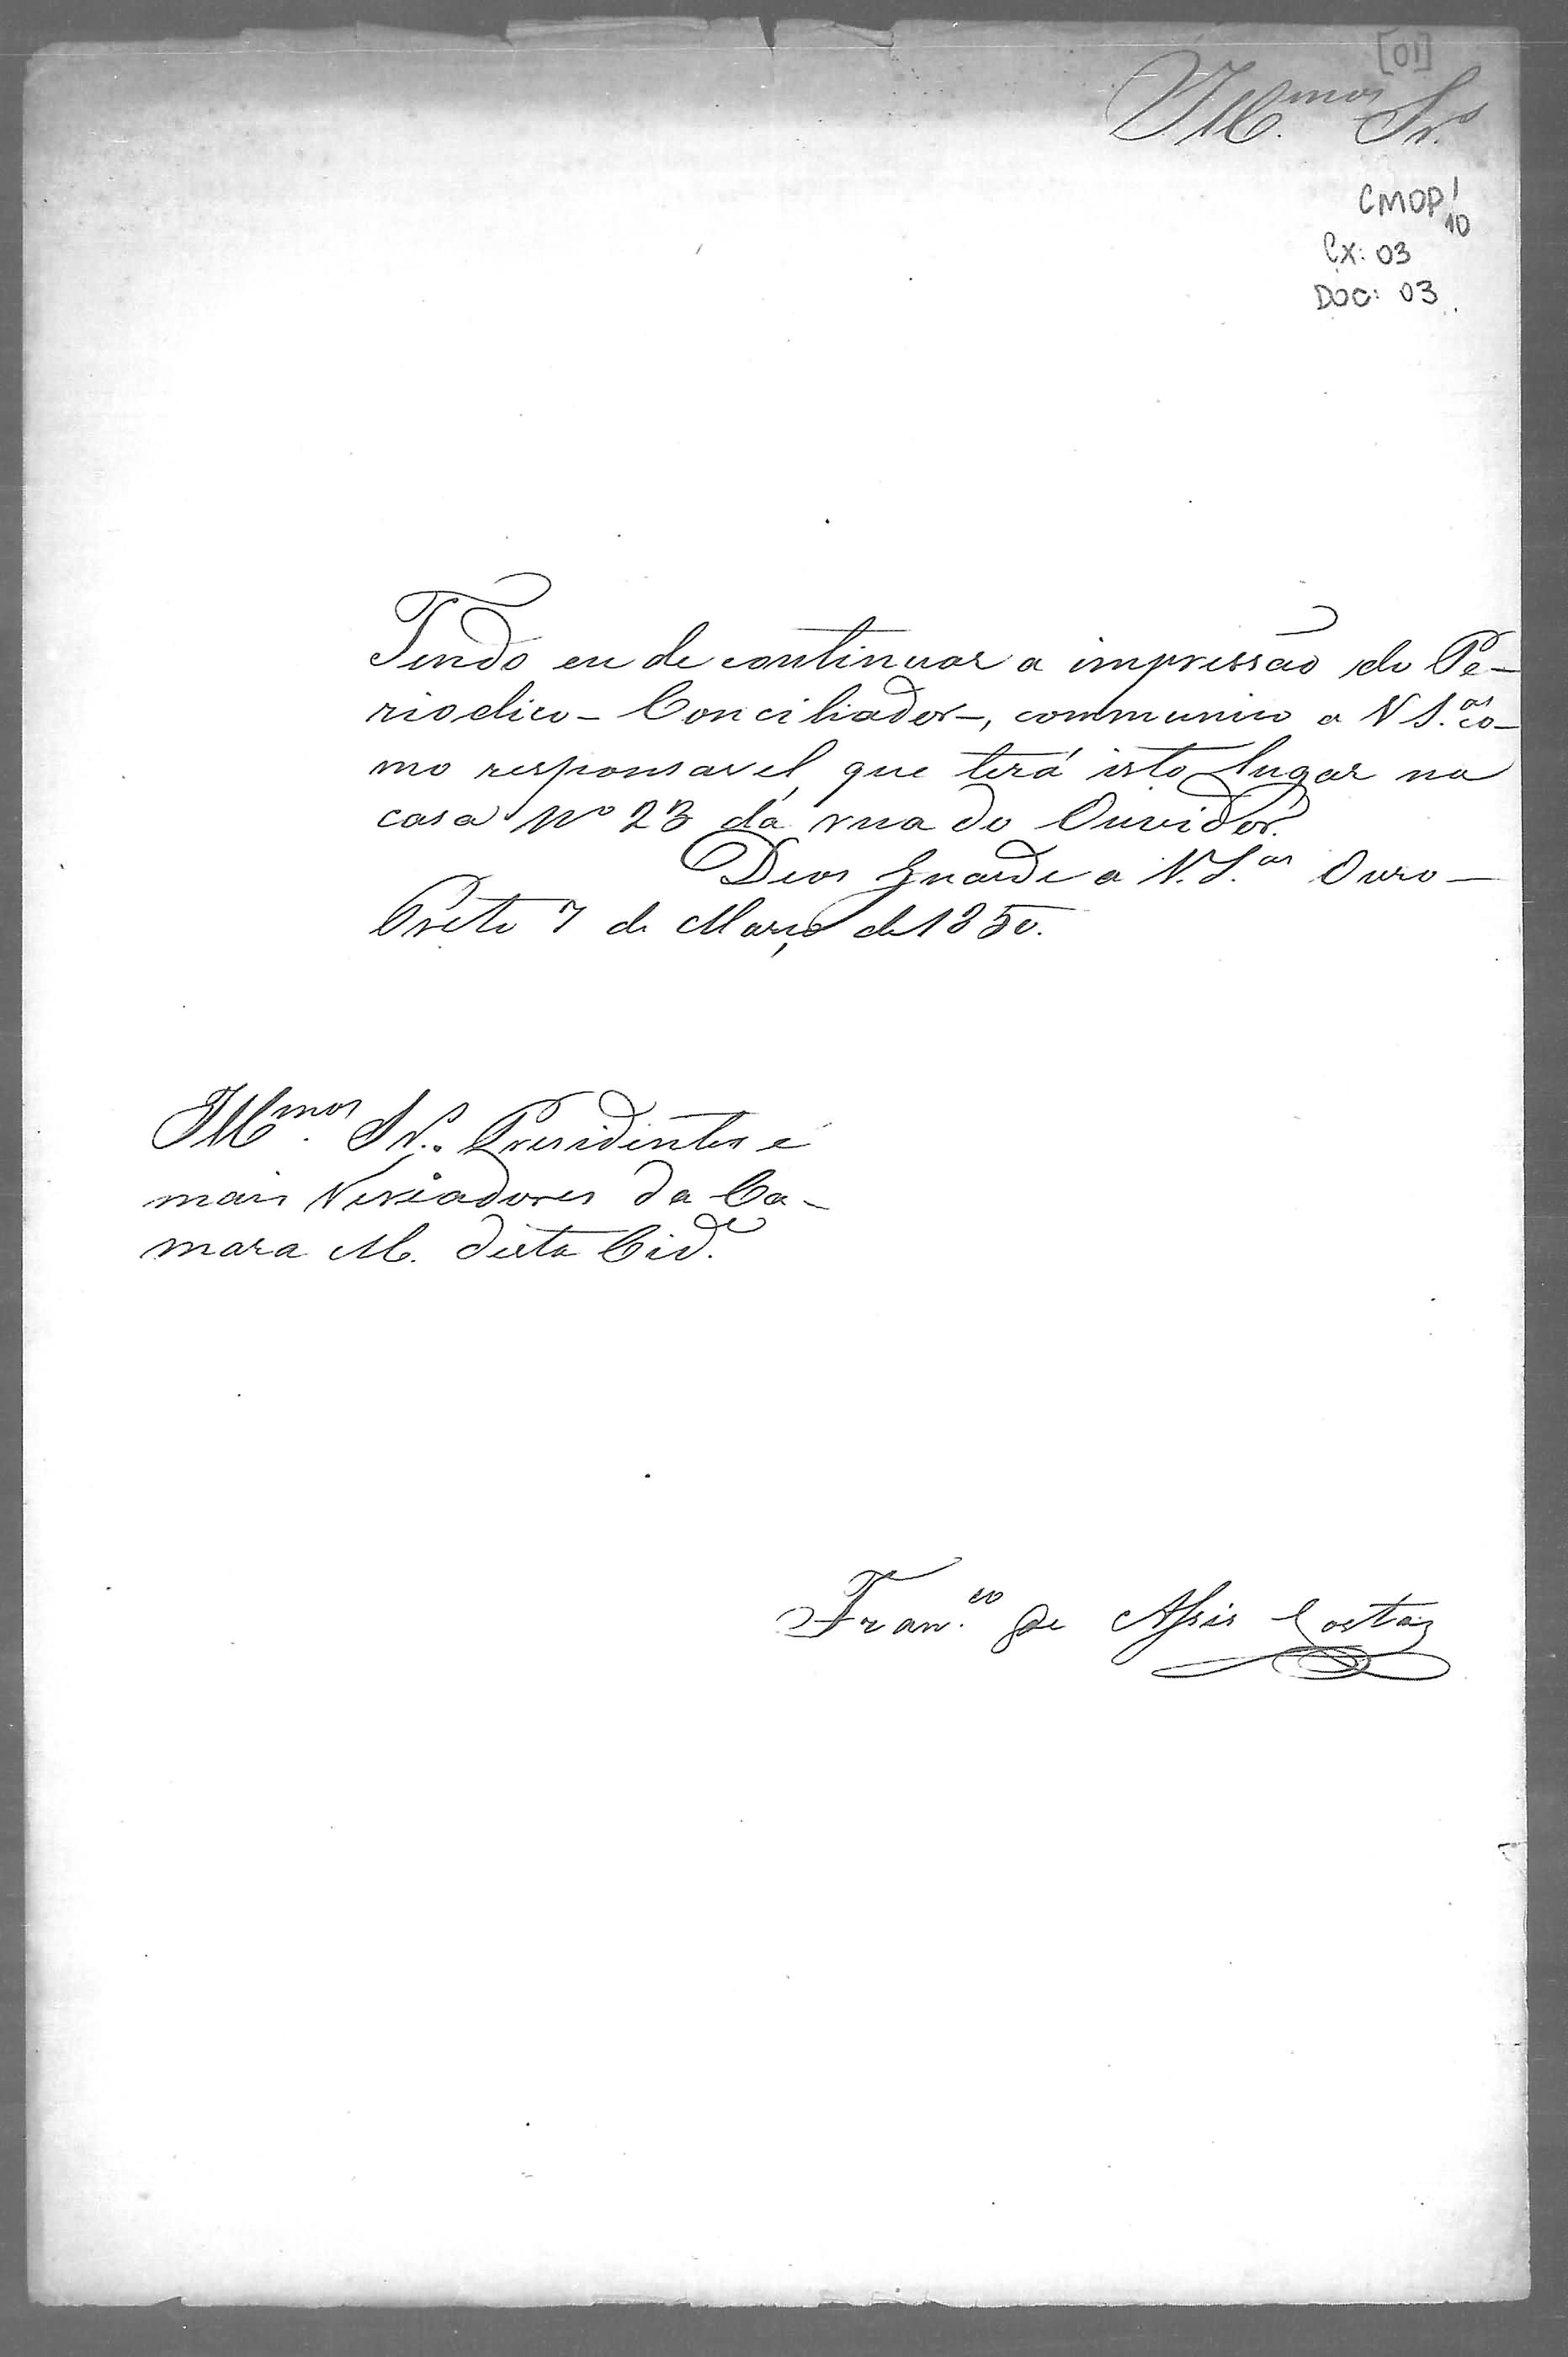 [01]
Illmos Srs
CMOP 1/10
Cx: 03
DOC: 03
Tendo eu de continuar a impressão do Pe-
riodico - Conciliador -, communico a V S.as co-
mo responsavel, que terá isto lugar na
casa No 23 da rua do Ouvidor.
Deos Guarde a V. S.as Ouro -
Preto 7 de Março de 1850.
Illmos. Srs. Presidentes e
mais Vereadores da Ca-
mara M. desta Cid.e
Fran.co de Assis Costa